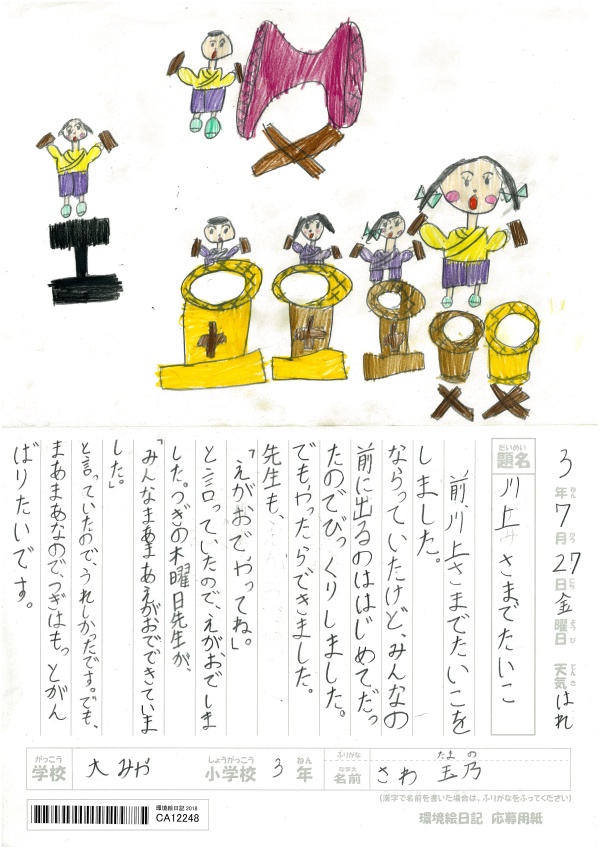 3年7月27日金曜日 天気はれ
ねん がつ にち ようび てんき
だいめい
題名
川上さまでたいこ
前、川上さまでたいこを
しました。
ならっていたけど、みんなの
前に出るのははじめてだっ
たのでびっくりしました。
でもやったらできました。
先生も、
「えがおでやってね。」
と言って、いたので、えがおでしま
した。つぎの木曜日先生が、
「みんなまあまあえがおでできていま
した。」
と言っていたので、うれしかったです。でも、
まあまあなので、つぎはもっとがん
ばりたいです。
がっこう
学校
大みや
しょうがっこう ねん
小学校 3年
ふりがな
たまの
なまえ
名前
さわ 玉乃
(漢字で名前を書いた場合は、ふりがなをふってください)
環境絵日記 2018
CA12248
環境絵日記 応募用紙